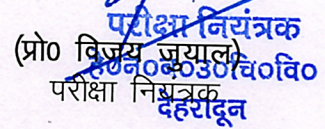 परीक्षा नियंत्रक
(प्रो० विजय जुयाल)
हे०न०ब०उ०चि०वि०
परीक्षा नियंत्रक
देहरादून